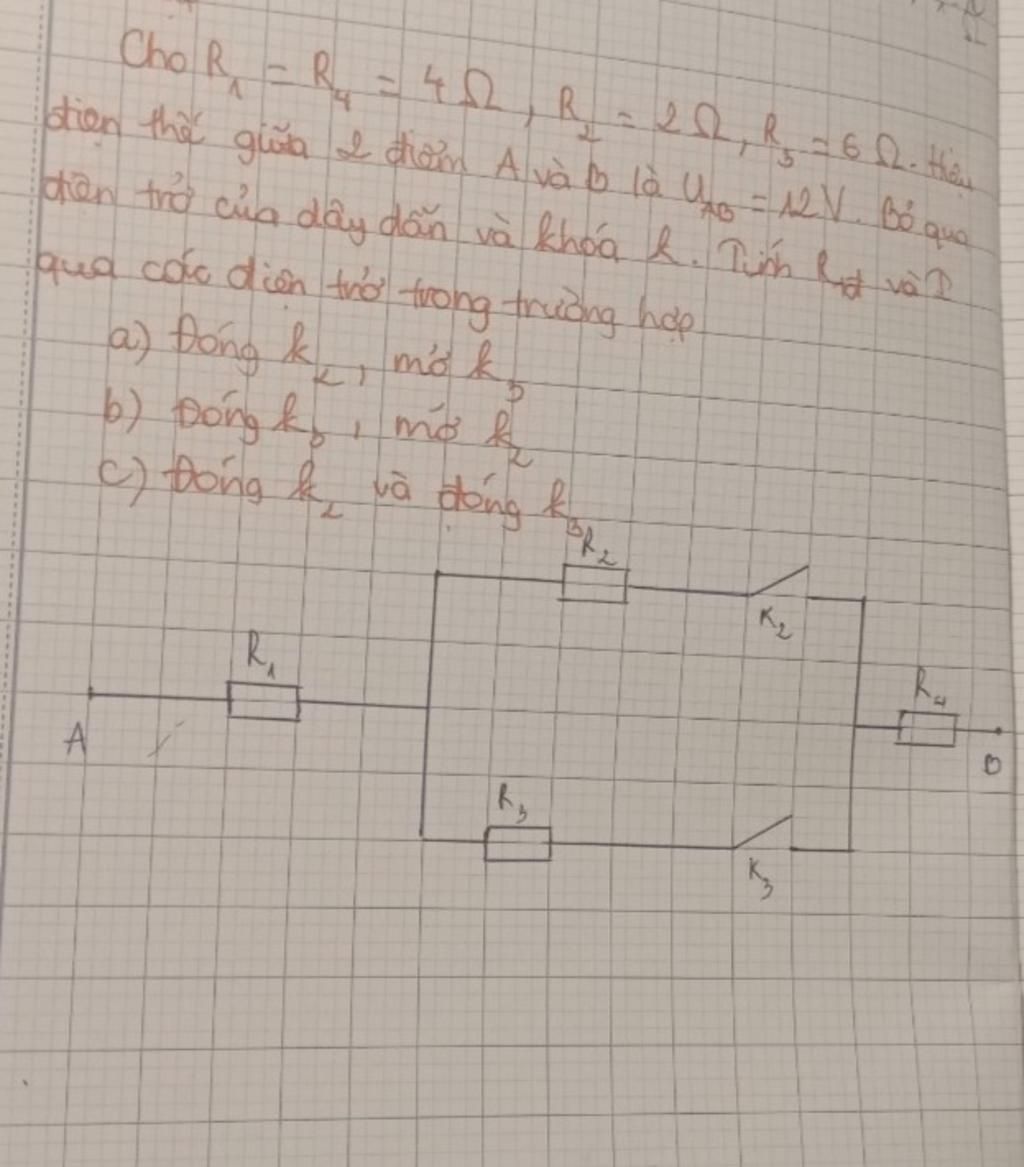 Cho R₁ = R₄ = 4Ω, R₂ = 2Ω, R₃ = 6Ω. Hiệu
điện thế giữa 2 điểm A và B là U_AB = 12V. Bỏ qua
điện trở của dây dẫn và khóa k. Tính R_tđ và I
qua các điện trở trong trường hợp
a) Đóng k₂, mở k₃
b) Đóng k₃, mở k₂
c) Đóng k₂ và đóng k₃
R₂
K₂
R₁
R₄
A
B
R₃
K₃